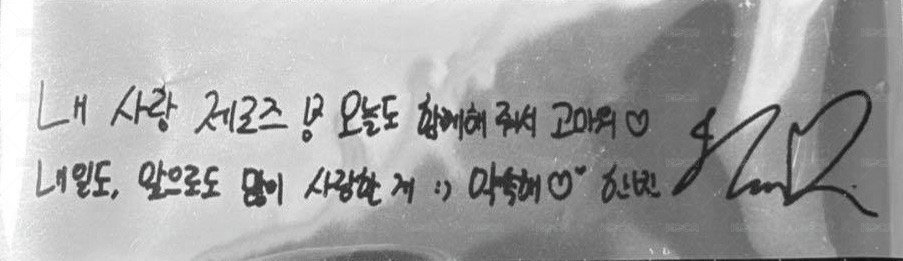 내 사랑 제로즈 오늘도 함께해 줘서 고마워♡
내일도, 앞으로도 많이 사랑할게 :) 약속해♡ 한빈